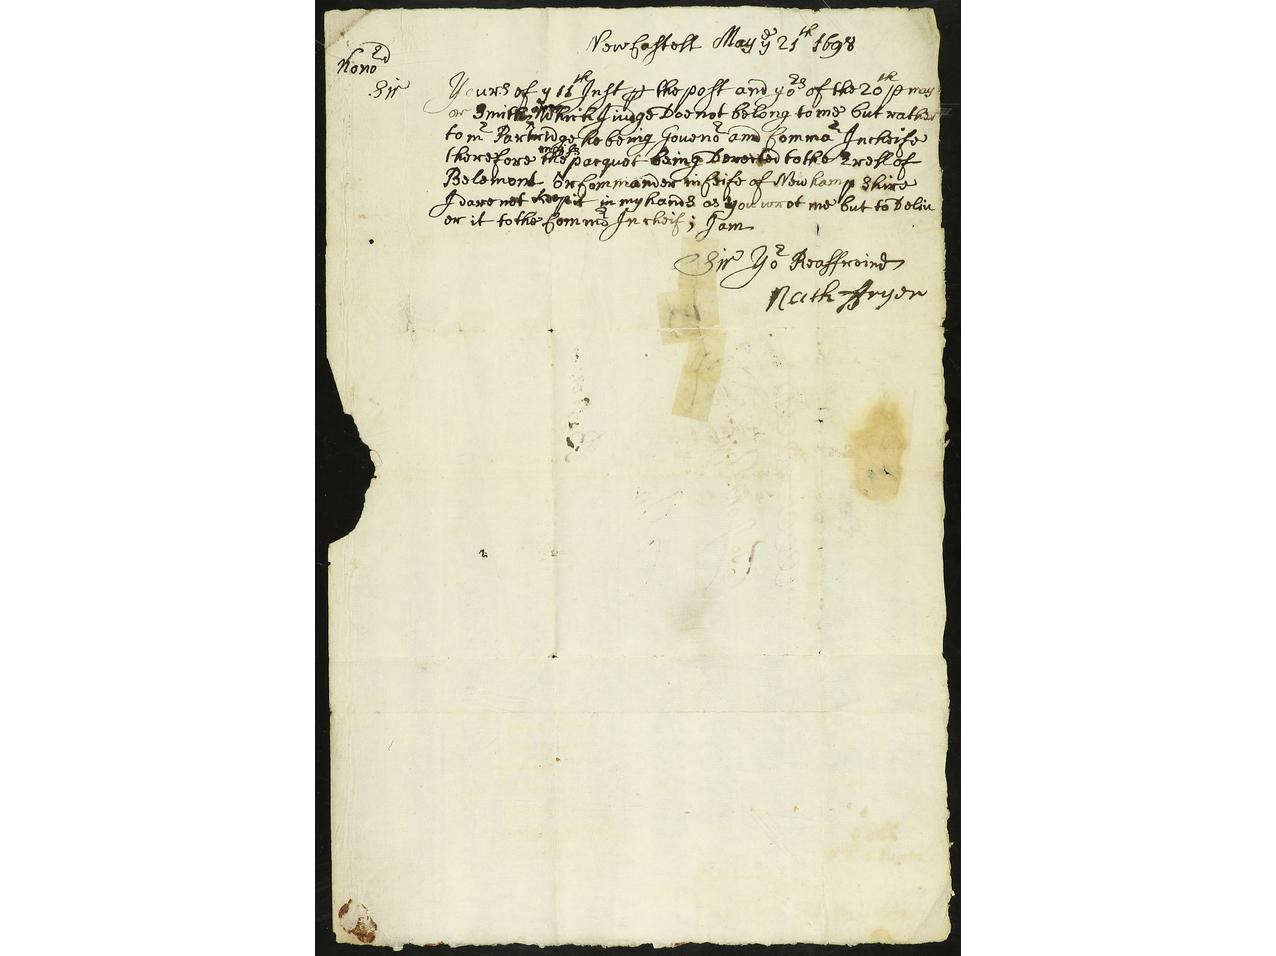 New Castell May ye 21th 1698
Honord
Sir
Yours of ye 11th Inst p the post and yors of the 20th p may
or Smith, which I iudge Doe not belong to me but rather
to mr Partridge he being Gouenor and Commar In cheife
therefore the pacquet being Derected to the Erell of
Belemont or Commander in Ceife of New hamp shire
I dare not keep it in my hands as you wrot me but to Deliu
er it to the Commdr In cheif; I am
Sir Yor Reall freind
Nath Fryer